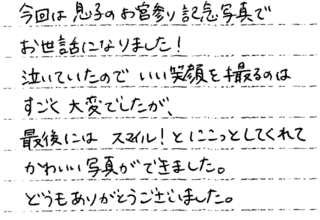 今回は息子のお宮参り記念写真で
お世話になりました!
泣いていたのでいい笑顔を撮るのは
すごく大変でしたが、
最後にはスマイル!とにこっとしてくれて
かわいい写真ができました。
どうもありがとうございました。